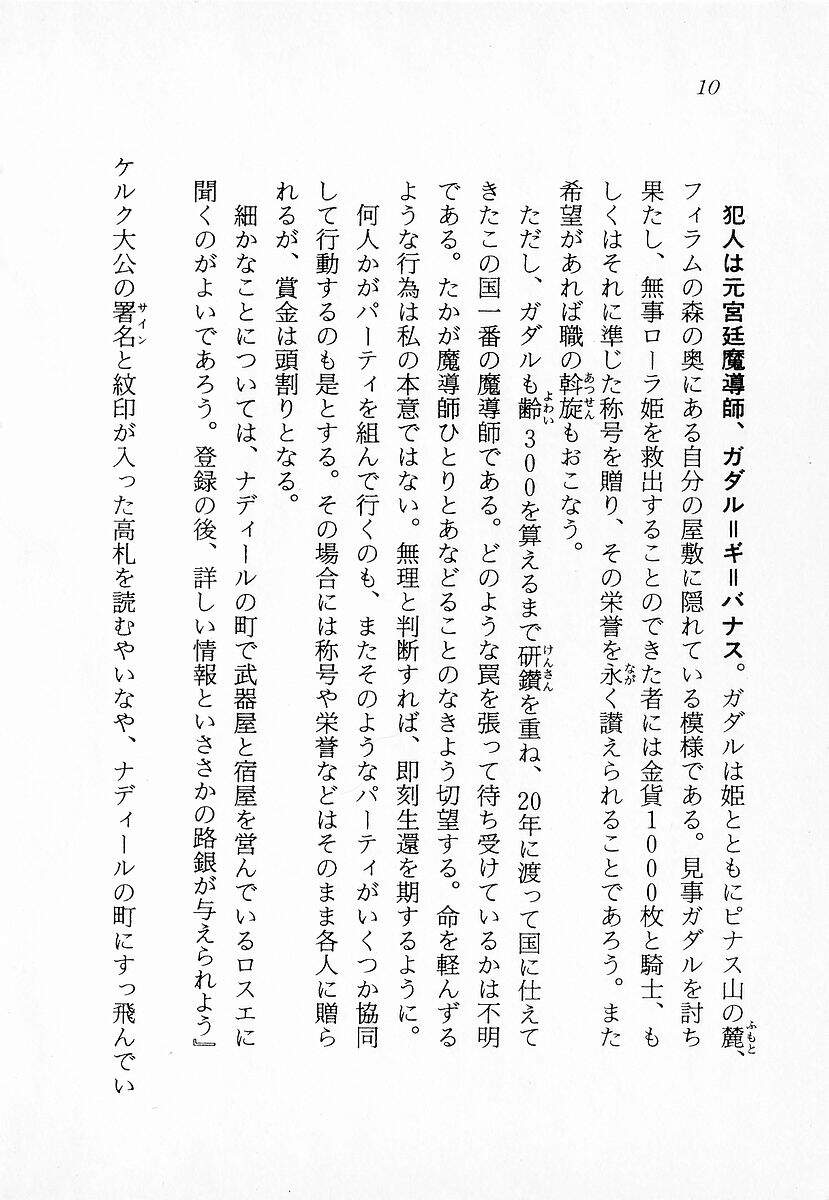 10
犯人は元宮廷魔導師、ガダル＝ギ＝バナス。ガダルは姫とともにピナス山の麓、
フィラムの森の奥にある自分の屋敷に隠れている模様である。見事ガダルを討ち
果たし、無事ローラ姫を救出することのできた者には金貨1000枚と騎士、も
しくはそれに準じた称号を贈り、その栄誉を永く讃えられることであろう。また
希望があれば職の斡旋もおこなう。
ただし、ガダルも齢300を算えるまで研鑽を重ね、20年に渡って国に仕えて
きたこの国一番の魔導師である。どのような罠を張って待ち受けているかは不明
である。たかが魔導師ひとりとあなどることのなきよう切望する。命を軽んずる
ような行為は私の本意ではない。無理と判断すれば、即刻生還を期するように。
何人かがパーティを組んで行くのも、またそのようなパーティがいくつか協同
して行動するのも是とする。その場合には称号や栄誉などはそのまま各人に贈ら
れるが、賞金は頭割りとなる。
細かなことについては、ナディールの町で武器屋と宿屋を営んでいるロスエに
聞くのがよいであろう。登録の後、詳しい情報といささかの路銀が与えられよう』
ケルク大公の署名と紋印が入った高札を読むやいなや、ナディールの町にすっ飛んでい